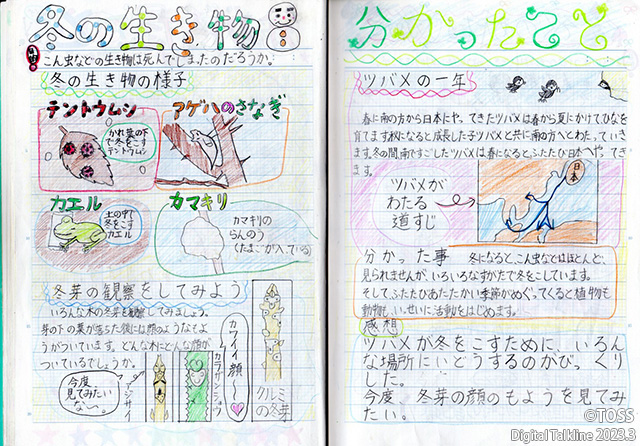 冬の生き物
問題!
こん虫などの生き物は死んでしまったのだろうか。
冬の生き物の様子
テントウムシ
かれ葉の下
で冬をこす
テントウムシ
アゲハのさなぎ
カエル
土の中で
冬をこす
カエル
カマキリ
カマキリの
らんのう
(たまごが入っている)
冬芽の観察をしてみよう
いろんな木の冬芽を観察してみましょう。
芽の下の葉が落ちた後には顔のようなもよ
うがついています。どんな木にどんな顔が
ついているでしょうか。
今度
見てみたい
な〜。
アジサイ
カラスザンショウ
カワイイ顔〜
クルミ
の冬芽
分かったこと
ツバメの一年
春に南の方から日本にやってきたツバメは春から夏にかけてひなを
育てます。秋になると成長した子ツバメと共に南の方へとわたっていき
ます。冬の間、南ですごしたツバメは春になると、ふたたび日本へやってき
ます。
ツバメが
わたる
道すじ
日本
分かった事
冬になると、こん虫などはほとんど、
見られませんが、いろいろなすがたで冬をこしています。
そして、ふたたびあたたかい季節がめぐってくると植物も
動物も、いっせいに活動をはじめます。
感想
ツバメが冬をこすために、いろん
な場所にいどうするのがびっくり
した。
今度、冬芽の顔のもようを見てみ
たい。
©TOSS
Digital Talkline 2023.3